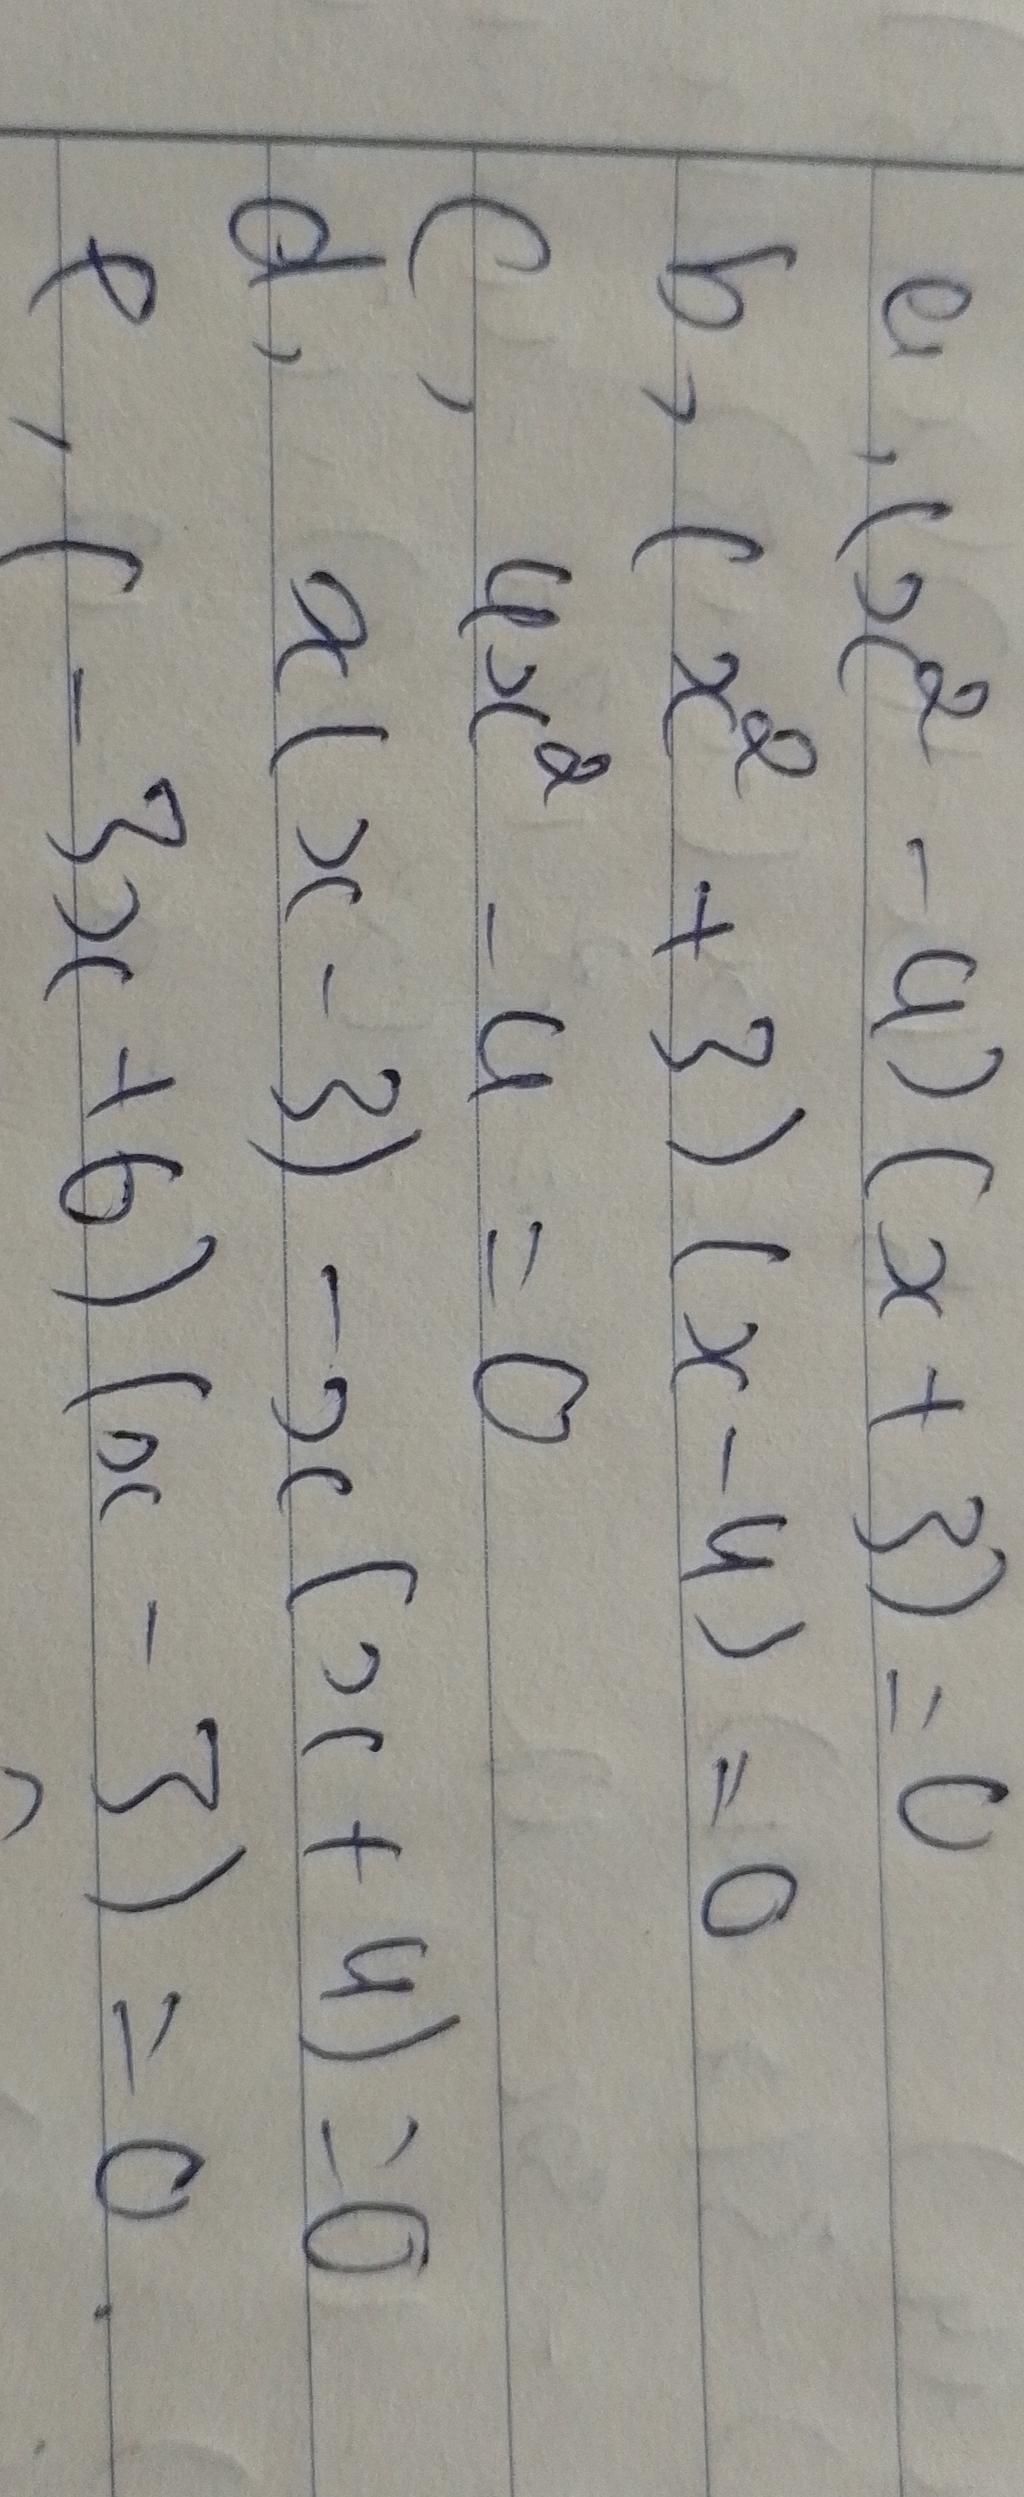 a, (x² - 4)(x + 3) = 0
b, (x² + 3)(x - 4) = 0
c, 4x² - 4 = 0
d, x(x - 3) - x(x + 4) = 0
e, (-3x + 6)(x - 3) = 0.